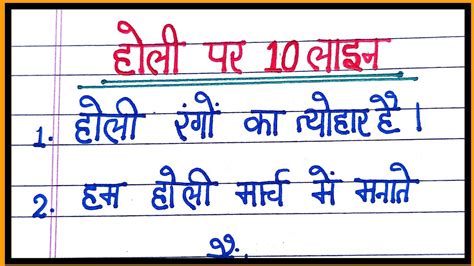 होली पर 10 लाइन
1. होली रंगों का त्योहार है ।
2. हम होली मार्च में मनाते